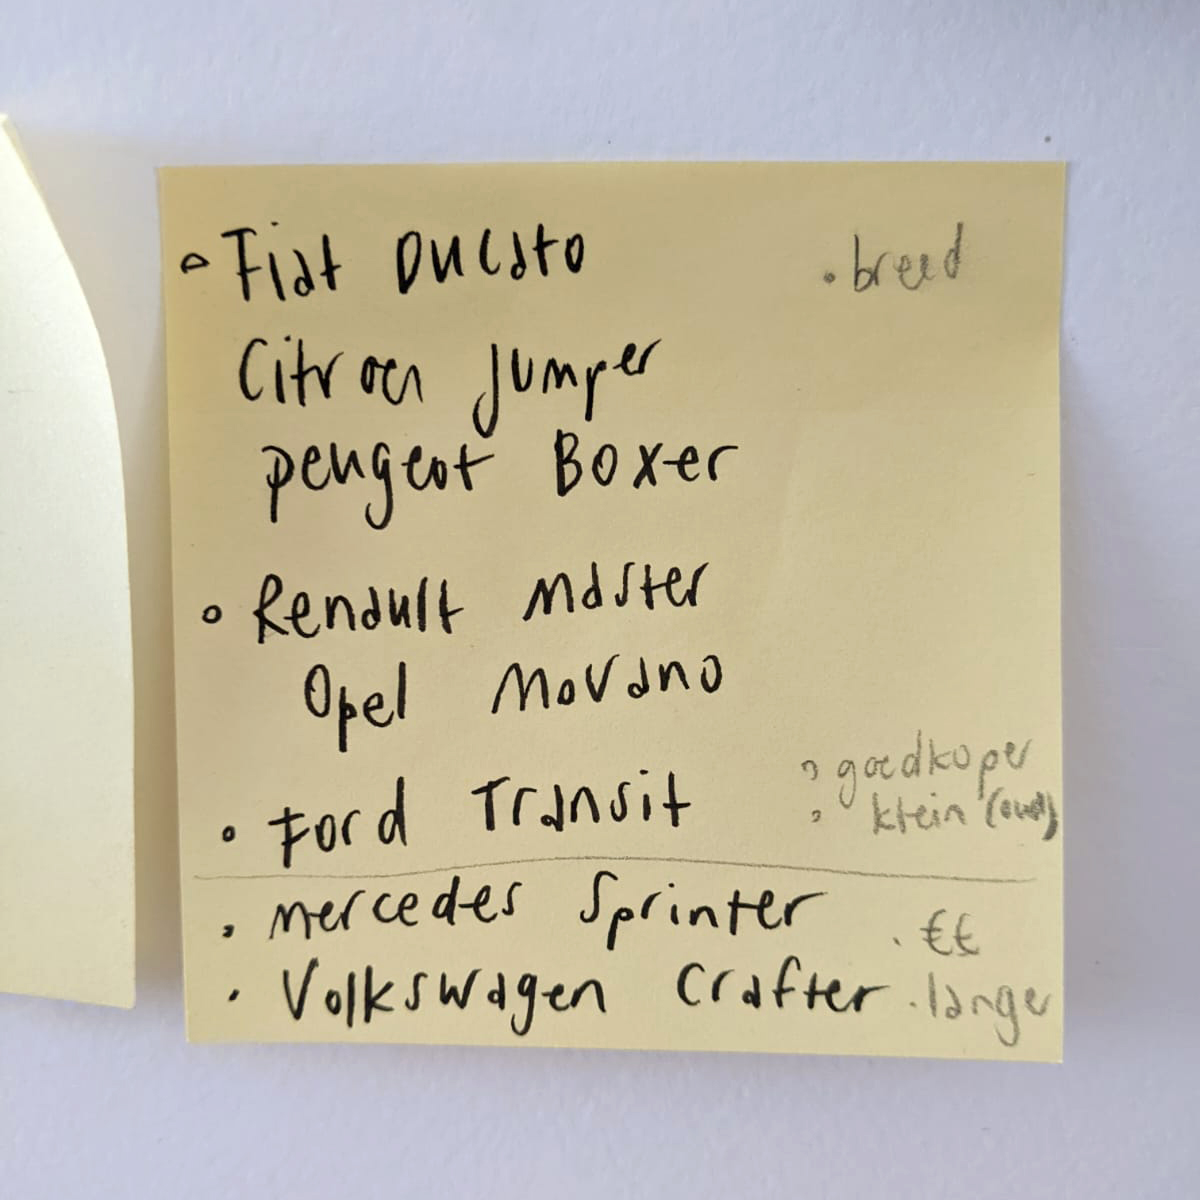 Fiat Ducato · breed
Citroen Jumper
peugeot Boxer
Renault Master
Opel Movano
goedkoper
Ford Transit klein (oud)
mercedes Sprinter · €€
· Volkswagen Crafter · langer